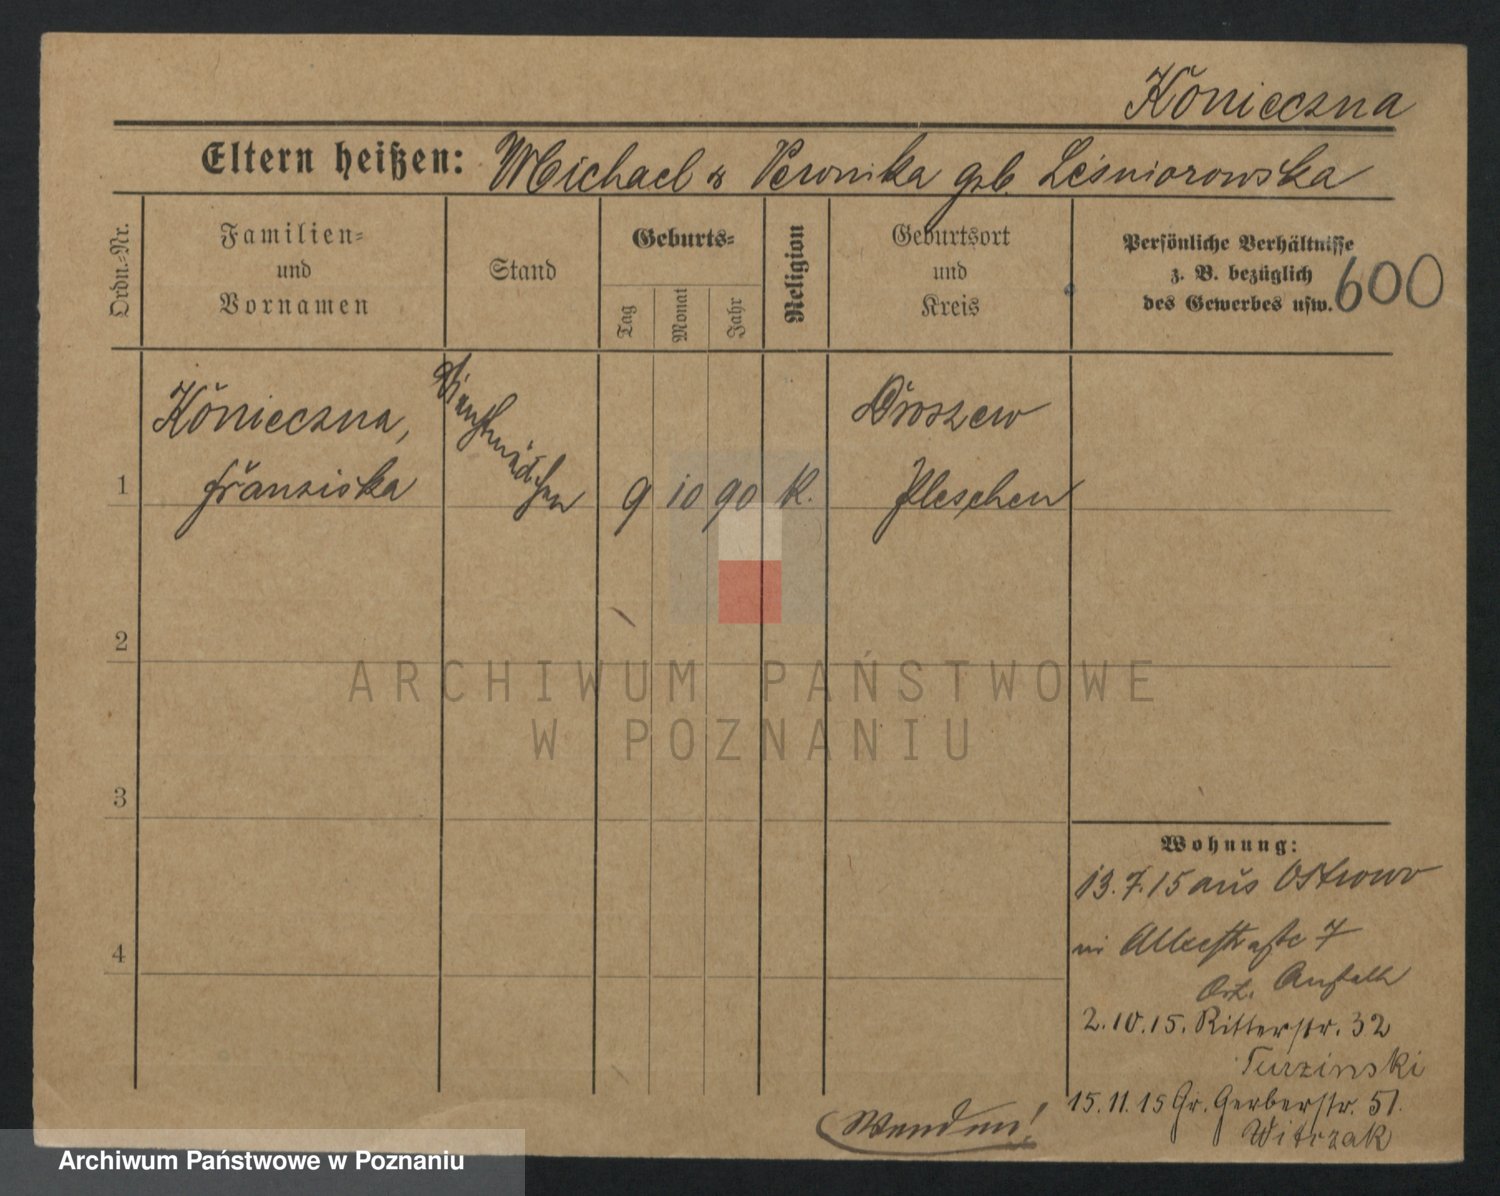 Konieczna
Eltern heißen: Michael & Veronika geb. Leśniorowska
Ordn.-Nr.
Familien-
und
Vornamen
Stand
Geburts-
Tag
Monat
Jahr
Religion
Geburtsort
und
Kreis
Persönliche Verhältnisse
z. B. bezüglich
des Gewerbes usw.
600
1
Konieczna,
Franziska
Dienstmädchen
9 10 90 K.
Droszew
Pleschen
2
3
4
Wohnung:
13.7.15 aus Ostrowo
Anstalt
2.10.15. Ritterstr. 32
Turzinski
15.11.15 Gr. Gerberstr. 51.
Witczak
Wenden!
ARCHIWUM PAŃSTWOWE
W POZNANIU
Archiwum Państwowe w Poznaniu